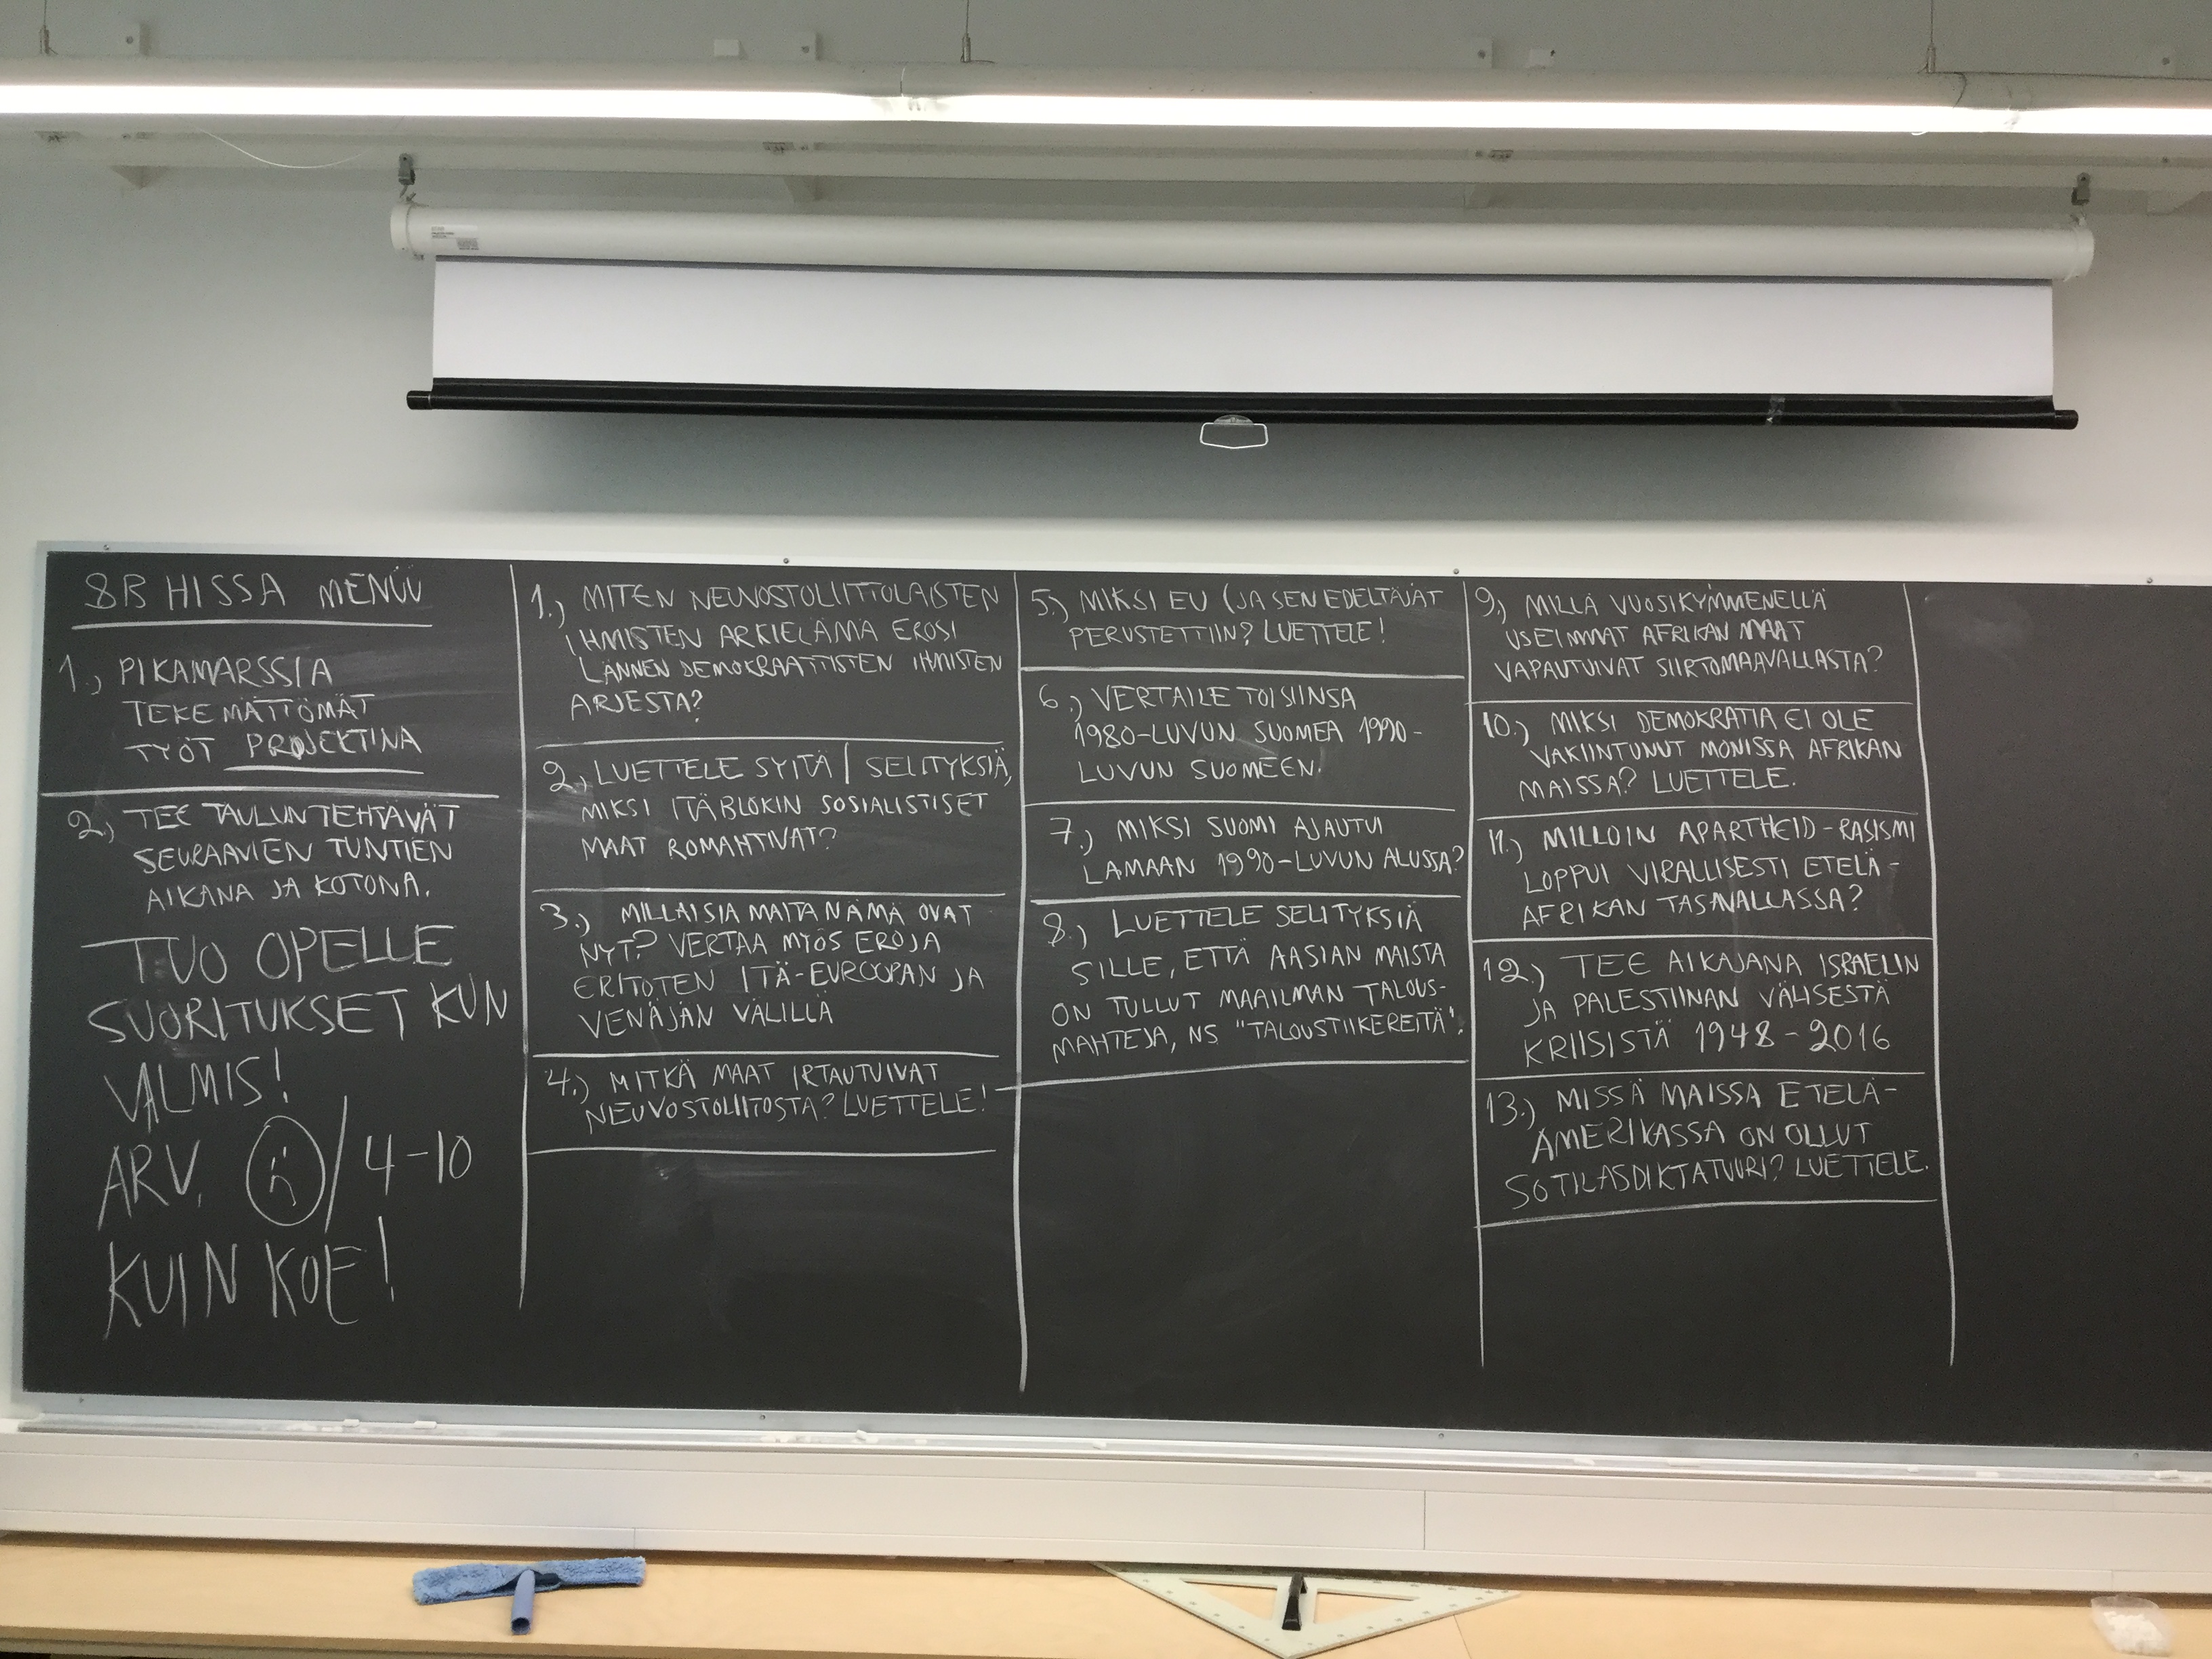 8B HISSA MENUU
1.) PIKAMARSSIA
TEKEMÄTTÖMÄT
TYÖT PROJEKTINA
2.) TEE TAULUN TEHTÄVÄT
SEURAAVIEN TUNTIEN
AIKANA JA KOTONA.
TUO OPELLE
SUORITUKSET KUN
VALMIS!
ARV. / 4-10
KUIN KOE!
1.) MITEN NEUVOSTOLIITTOLAISTEN
IHMISTEN ARKIELÄMÄ EROSI
LÄNNEN DEMOKRAATTISTEN IHMISTEN
ARJESTA?
2.) LUETTELE SYITÄ / SELITYKSIÄ,
MIKSI ITÄBLOKIN SOSIALISTISET
MAAT ROMAHTIVAT?
3.) MILLAISIA MAITA NÄMÄ OVAT
NYT? VERTAA MYÖS EROJA
ERITOTEN ITÄ-EUROOPAN JA
VENÄJÄN VÄLILLÄ
4.) MITKÄ MAAT IRTAUTUIVAT
NEUVOSTOLIITOSTA? LUETTELE!
5.) MIKSI EU (JA SEN EDELTÄJÄT
PERUSTETTIIN? LUETTELE!
6.) VERTAILE TOISIINSA
1980-LUVUN SUOMEA 1990-
LUVUN SUOMEEN.
7.) MIKSI SUOMI AJAUTUI
LAMAAN 1990-LUVUN ALUSSA?
8.) LUETTELE SELITYKSIÄ
SILLE, ETTÄ AASIAN MAISTA
ON TULLUT MAAILMAN TALOUS-
MAHTEJA, NS "TALOUSTIIKEREITÄ".
9.) MILLÄ VUOSIKYMMENELLÄ
USEIMMAT AFRIKAN MAAT
VAPAUTUIVAT SIIRTOMAAVALLASTA?
10.) MIKSI DEMOKRATIA EI OLE
VAKIINTUNUT MONISSA AFRIKAN
MAISSA? LUETTELE.
11.) MILLOIN APARTHEID-RASISMI
LOPPUI VIRALLISESTI ETELÄ-
AFRIKAN TASAVALLASSA?
12.) TEE AIKAJANA ISRAELIN
JA PALESTIINAN VÄLISESTÄ
KRIISISTÄ 1948-2016
13.) MISSÄ MAISSA ETELÄ-
AMERIKASSA ON OLLUT
SOTILASDIKTATUURI? LUETTELE.